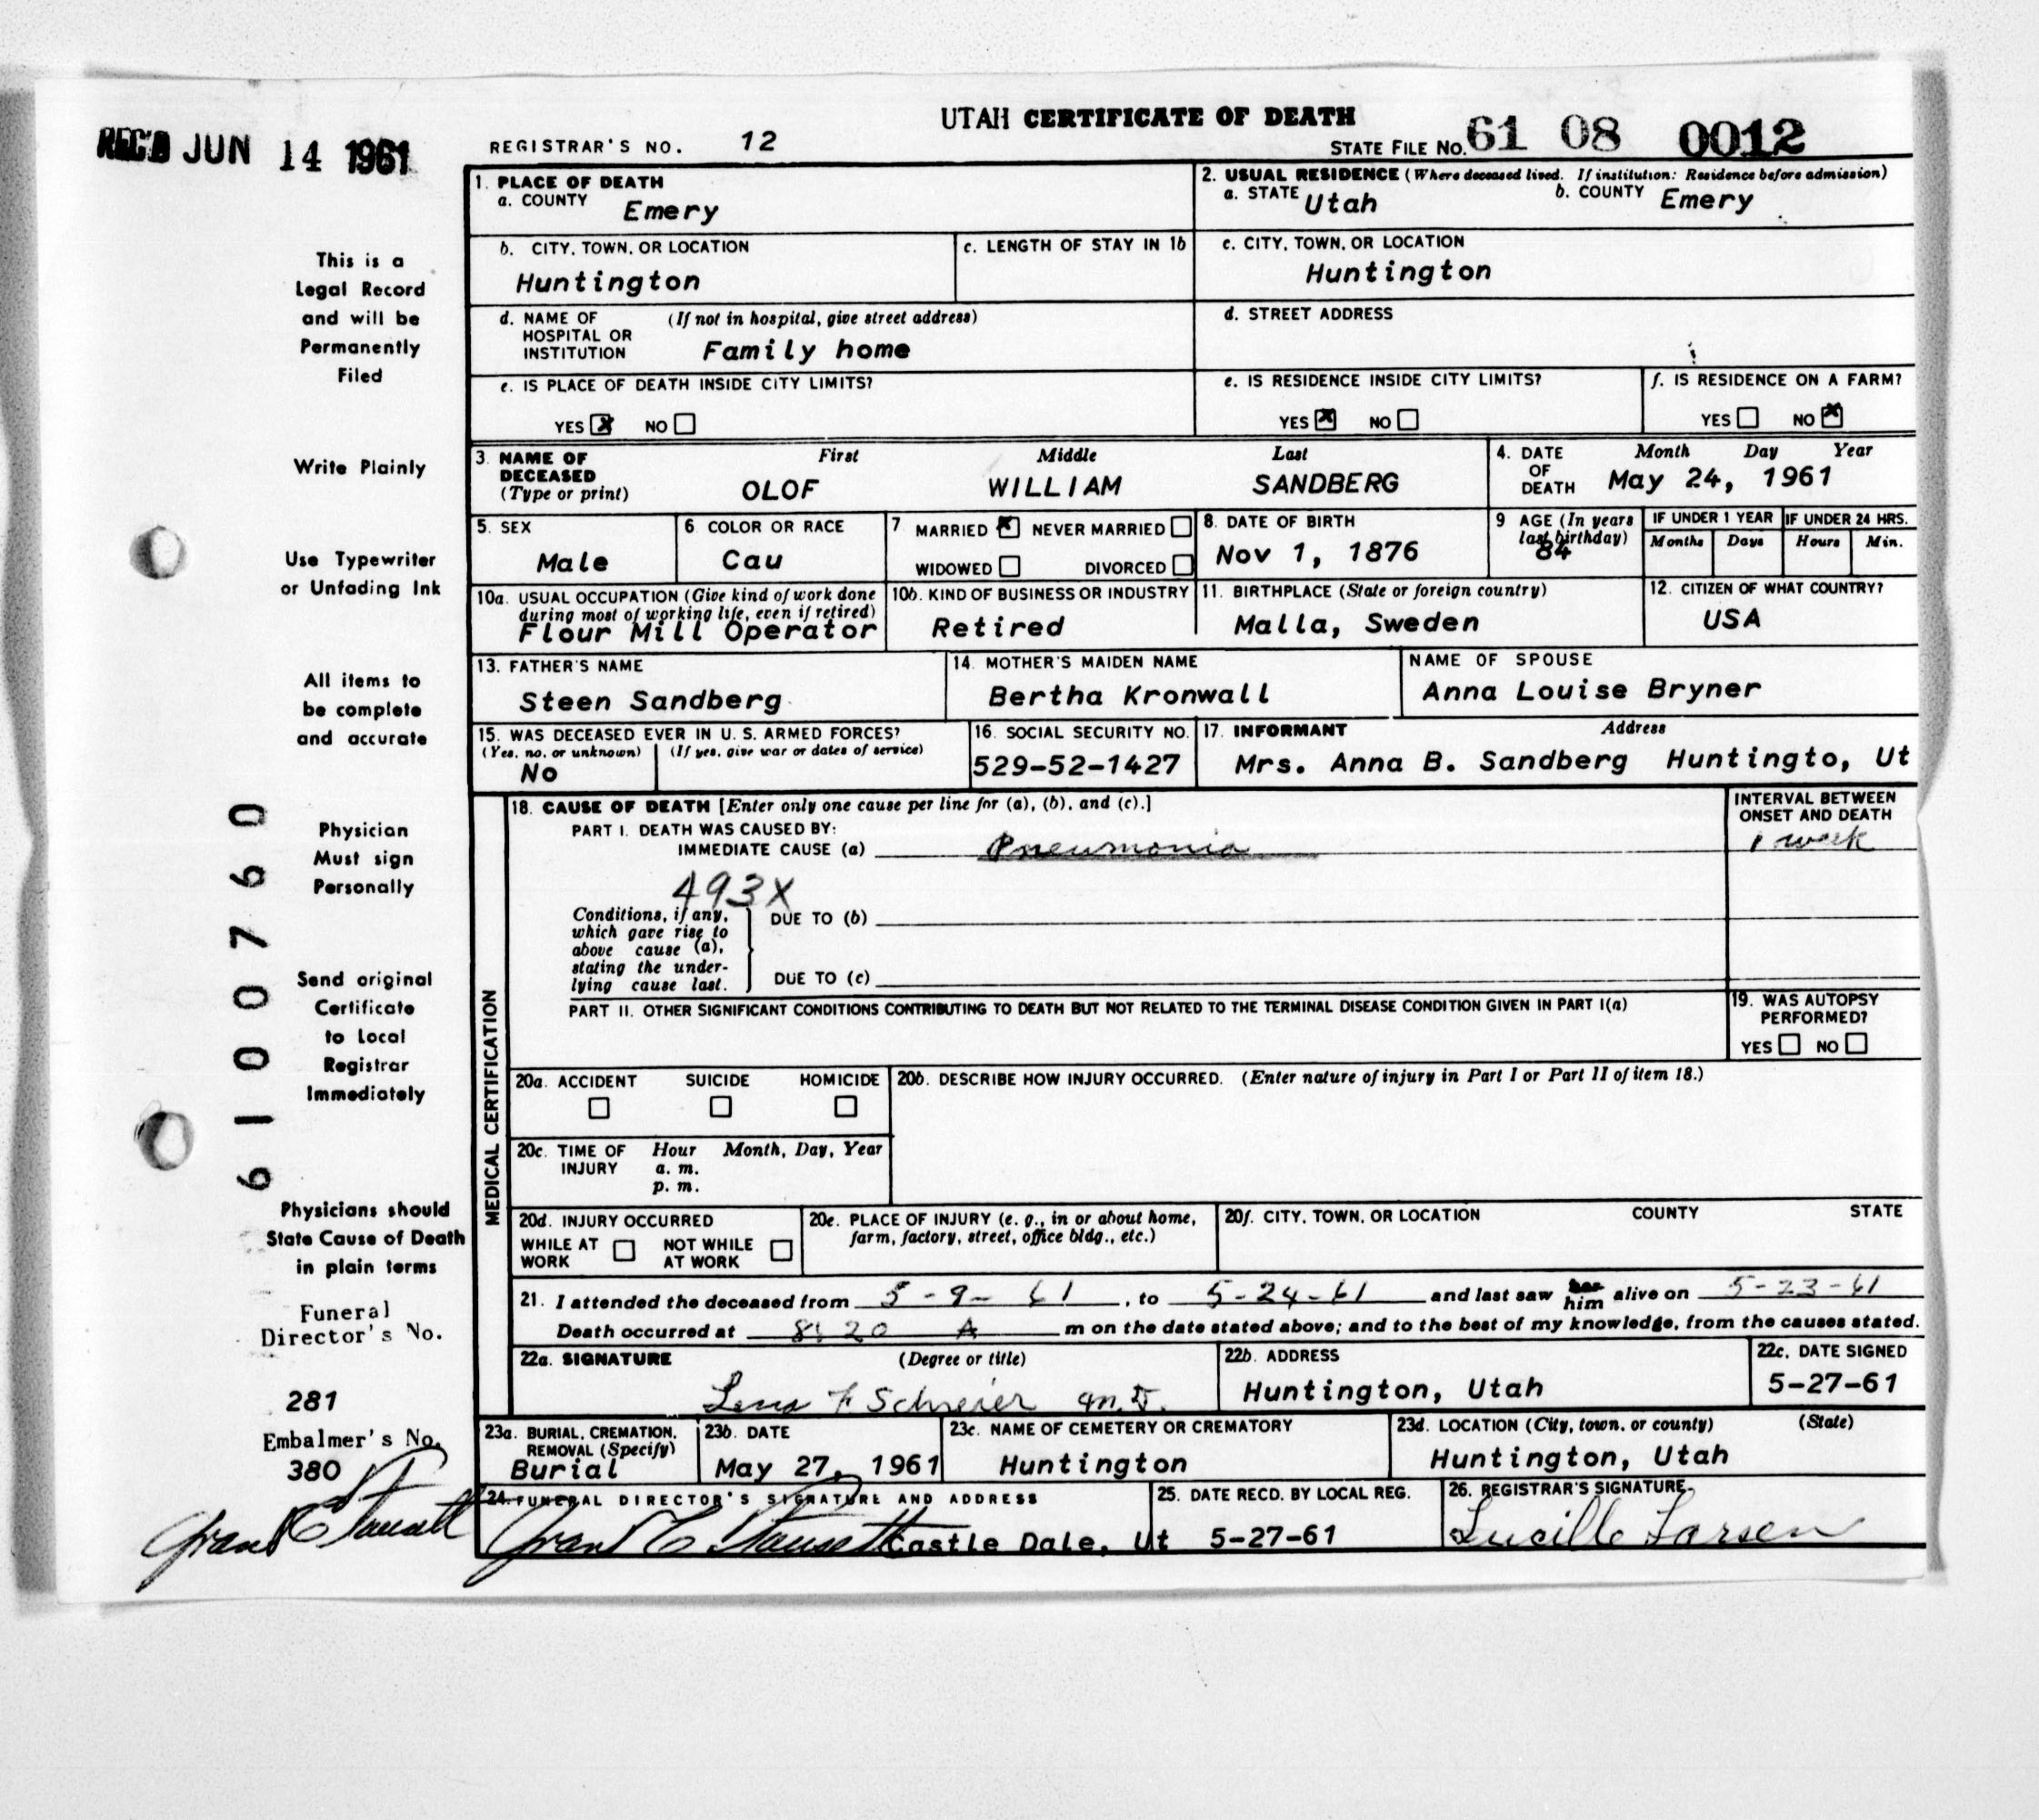 UTAH CERTIFICATE OF DEATH
REC'D JUN 14 1961
REGISTRAR'S NO. 12
STATE FILE NO. 61 08 0012
1. PLACE OF DEATH
a. COUNTY Emery
2. USUAL RESIDENCE (Where deceased lived. If institution: Residence before admission)
a. STATE Utah b. COUNTY Emery
b. CITY, TOWN, OR LOCATION
Huntington
c. LENGTH OF STAY IN 1b
c. CITY, TOWN, OR LOCATION
Huntington
d. NAME OF (If not in hospital, give street address)
HOSPITAL OR
INSTITUTION Family home
d. STREET ADDRESS
e. IS PLACE OF DEATH INSIDE CITY LIMITS?
YES X NO
e. IS RESIDENCE INSIDE CITY LIMITS?
YES X NO
f. IS RESIDENCE ON A FARM?
YES NO X
3. NAME OF First Middle Last
DECEASED
(Type or print) OLOF WILLIAM SANDBERG
4. DATE Month Day Year
OF
DEATH May 24, 1961
5. SEX
Male
6 COLOR OR RACE
Cau
7 MARRIED X NEVER MARRIED
WIDOWED DIVORCED
8. DATE OF BIRTH
Nov 1, 1876
9 AGE (In years
last birthday)
84
IF UNDER 1 YEAR
Months Days
IF UNDER 24 HRS.
Hours Min.
10a. USUAL OCCUPATION (Give kind of work done
during most of working life, even if retired)
Flour Mill Operator
10b. KIND OF BUSINESS OR INDUSTRY
Retired
11. BIRTHPLACE (State or foreign country)
Malla, Sweden
12. CITIZEN OF WHAT COUNTRY?
USA
13. FATHER'S NAME
Steen Sandberg
14. MOTHER'S MAIDEN NAME
Bertha Kronwall
NAME OF SPOUSE
Anna Louise Bryner
15. WAS DECEASED EVER IN U. S. ARMED FORCES?
(Yes, no, or unknown) (If yes, give war or dates of service)
No
16. SOCIAL SECURITY NO.
529-52-1427
17. INFORMANT Address
Mrs. Anna B. Sandberg Huntingto, Ut
MEDICAL CERTIFICATION
18. CAUSE OF DEATH [Enter only one cause per line for (a), (b), and (c).]
PART I. DEATH WAS CAUSED BY:
IMMEDIATE CAUSE (a) Pneumonia
INTERVAL BETWEEN
ONSET AND DEATH
1 week
493X
Conditions, if any,
which gave rise to
above cause (a),
stating the under-
lying cause last.
DUE TO (b)
DUE TO (c)
PART II. OTHER SIGNIFICANT CONDITIONS CONTRIBUTING TO DEATH BUT NOT RELATED TO THE TERMINAL DISEASE CONDITION GIVEN IN PART I(a)
19. WAS AUTOPSY
PERFORMED?
YES NO
20a. ACCIDENT SUICIDE HOMICIDE
20b. DESCRIBE HOW INJURY OCCURRED. (Enter nature of injury in Part I or Part II of item 18.)
20c. TIME OF Hour Month, Day, Year
INJURY a. m.
p. m.
20d. INJURY OCCURRED
WHILE AT NOT WHILE
WORK AT WORK
20e. PLACE OF INJURY (e. g., in or about home,
farm, factory, street, office bldg., etc.)
20f. CITY, TOWN, OR LOCATION COUNTY STATE
21. I attended the deceased from 5-9-61, to 5-24-61 and last saw her him alive on 5-23-61
Death occurred at 8:20 A m on the date stated above; and to the best of my knowledge, from the causes stated.
22a. SIGNATURE (Degree or title)
F Schreier M.D.
22b. ADDRESS
Huntington, Utah
22c. DATE SIGNED
5-27-61
23a. BURIAL, CREMATION,
REMOVAL (Specify)
Burial
23b. DATE
May 27, 1961
23c. NAME OF CEMETERY OR CREMATORY
Huntington
23d. LOCATION (City, town, or county) (State)
Huntington, Utah
24. FUNERAL DIRECTOR'S SIGNATURE AND ADDRESS
Grant C Castle Dale, Ut
25. DATE RECD. BY LOCAL REG.
5-27-61
26. REGISTRAR'S SIGNATURE
Lucille Larsen
This is a
Legal Record
and will be
Permanently
Filed
Write Plainly
Use Typewriter
or Unfading Ink
All items to
be complete
and accurate
Physician
Must sign
Personally
Send original
Certificate
to Local
Registrar
Immediately
Physicians should
State Cause of Death
in plain terms
Funeral
Director's No.
281
Embalmer's No.
380
Grant C
6100760